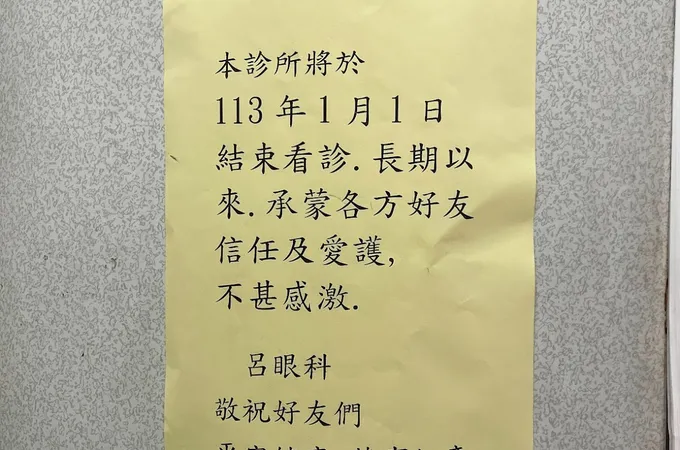 本診所將於
113年1月1日
結束看診.長期以
來.承蒙各方好友
信任及愛護,
不甚感激.
呂眼科
敬祝好友們